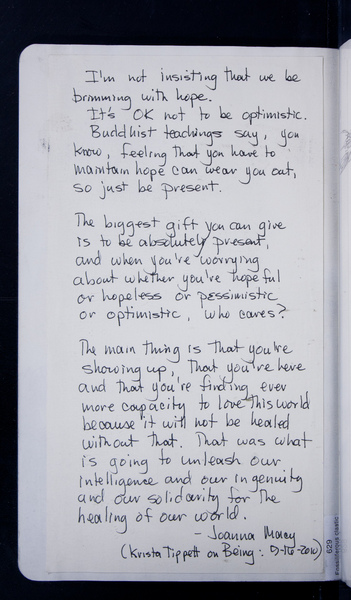 I'm not insisting that we be
brimming with hope.
It's OK not to be optimistic.
Buddhist teachings say, you
know, feeling that you have to
maintain hope can wear you out,
so just be present.
The biggest gift you can give
is to be absolutely present,
and when you're worrying
about whether you're hopeful
or hopeless or pessimistic
or optimistic, who cares?
The main thing is that you're
showing up, that you're here
and that you're finding ever
more capacity to love this world
because it will not be healed
without that. That was what
is going to unleash our
intelligence and our ingenuity
and our solidarity for the
healing of our world.
- Joanna Macy
(Krista Tippett on Being:
629